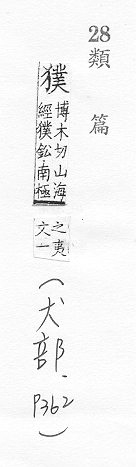 28
類篇
獛
博木切山海
經獛鈆南極
之夷
文一
（犬部．P362）